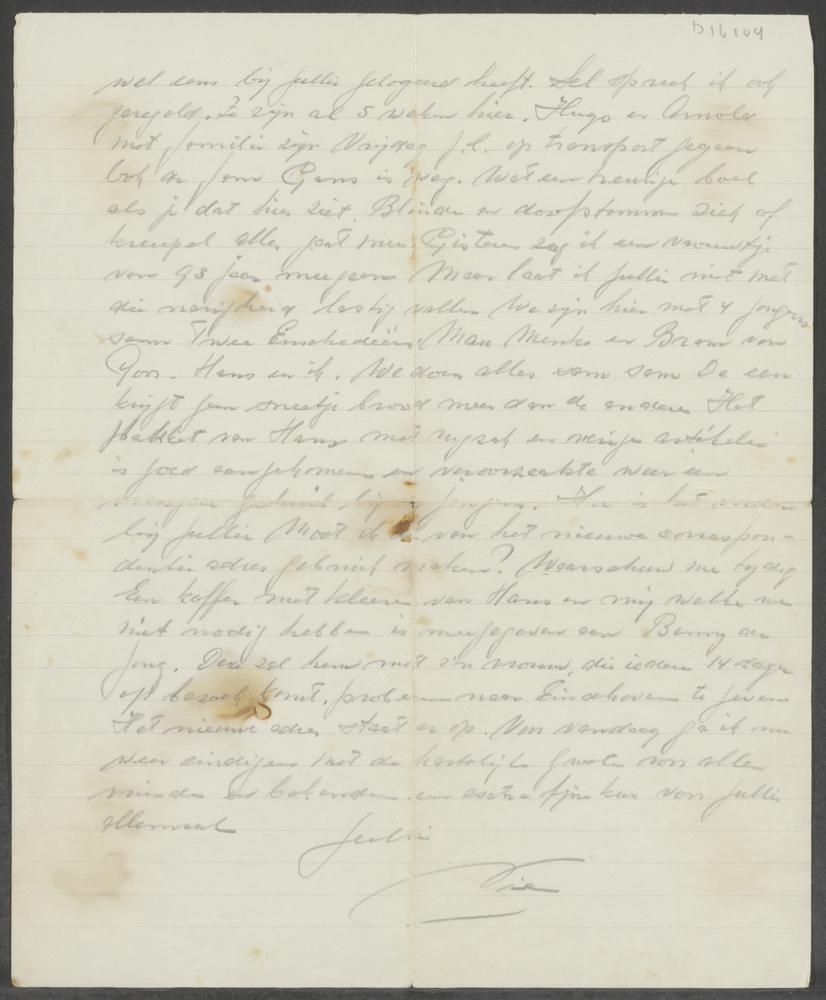 D16104
wel eens bij jullie gelogeerd heeft. Sel spreek ik ook
geregeld. Ze zijn al 5 weken hier. Hugo en Arnold
met familie zijn Vrijdag j.l. op transport gegaan
Ook de fam Gans is weg. Wat een treurige boel
als je dat hier ziet. Blinde en doofstomme ziek of
kreupel alles gaat mee. Gisteren zag ik een vrouwtje
van 93 jaar meegaan. Maar laat ik jullie niet met
die narigheid lastig vallen. We zijn hier met 4 jongens
saam Twee Enschedeërs Max Menko en Bram van
Goor. Hans en ik. We doen alles sam sam De een
krijgt geen sneetje brood meer dan de andere. Het
pakket van Hans met rugzak en overige artikelen
is goed aangekomen en veroorzaakte weer een
vreugde bij jongens. Hoe is het
bij jullie Moet ik van het nieuwe correspon-
dentie adres gebruik maken? Waarschuw me tijdig
Een koffer met kleeren van Hans en mij welke we
niet nodig hebben is meegegeven aan Benny de
Jong. Deze zal hem met z'n vrouw, die iedere 14 dagen
op bezoek komt, proberen naar Eindhoven te geven
Het nieuwe adres staat er op. Van vandaag ga ik nu
weer eindigen met de hartelijke groeten van alle
vrienden en bekenden en extra fijne kus voor jullie
allemaal Jullie